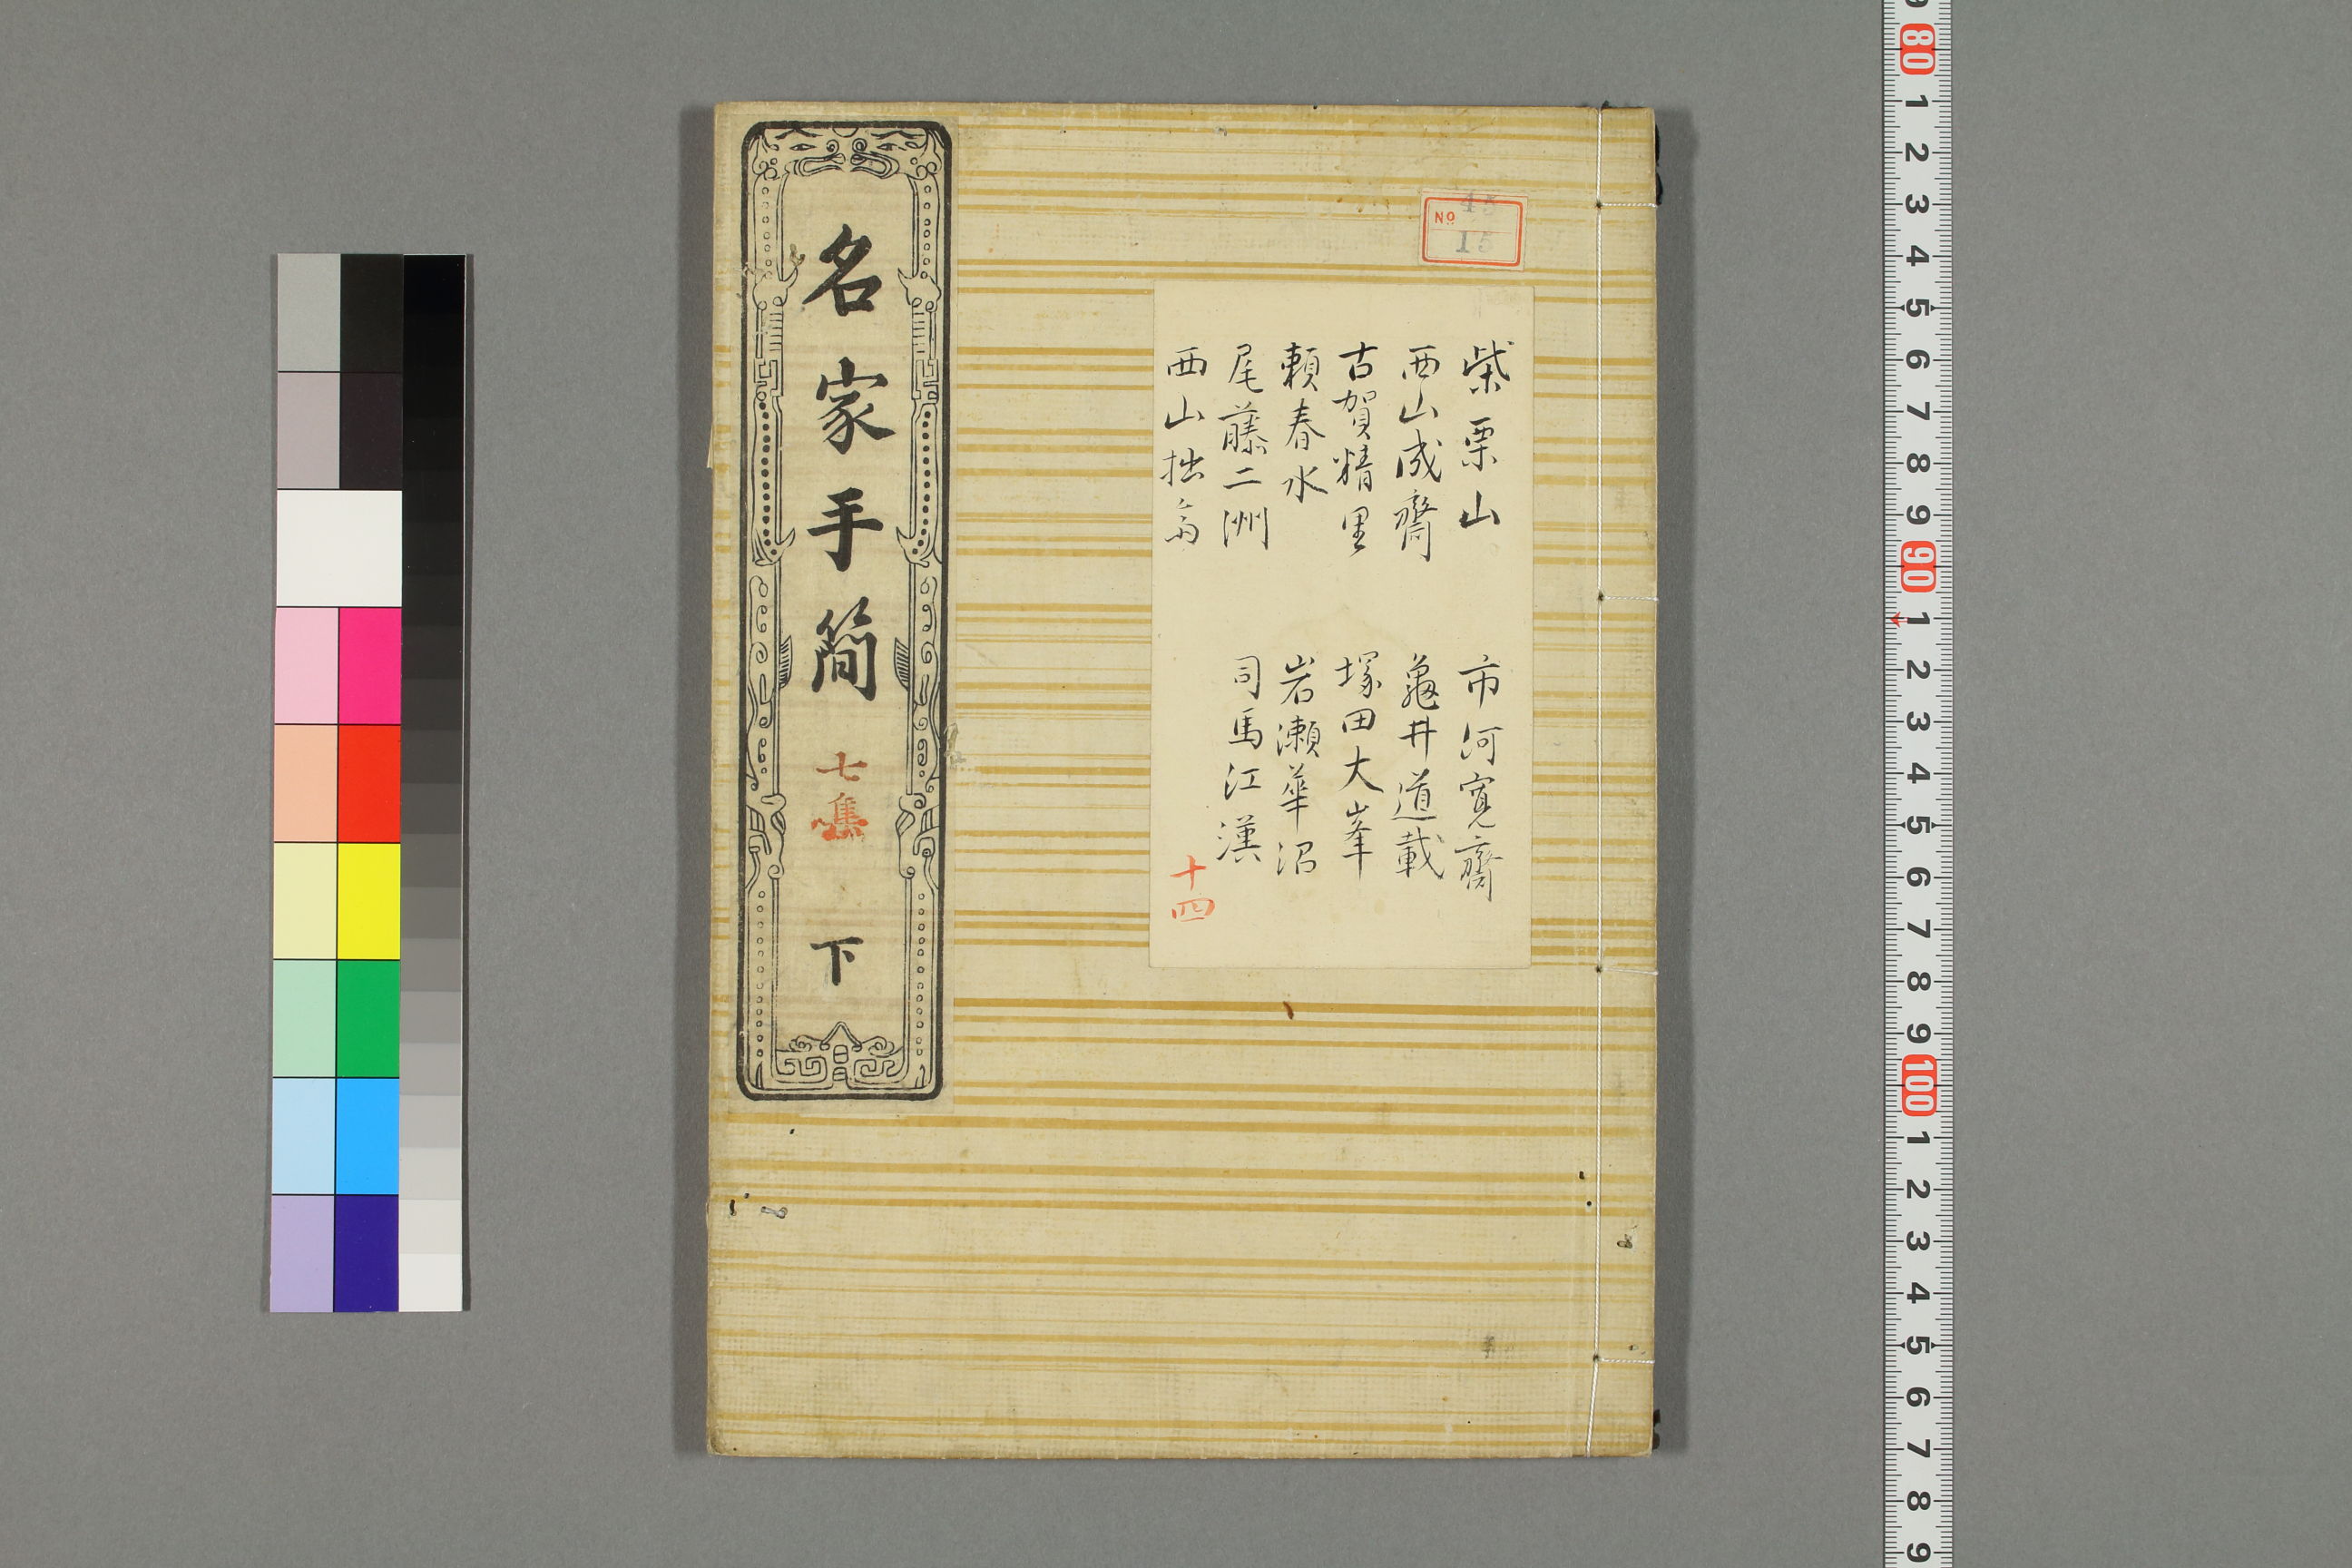 名家手簡 七集 下
No 45
15
柴栗山
西山成齋
古賀精里
頼春水
尾藤二洲
西山拙斎
市河寛齋
龜井道載
塚田大峯
岩瀬華沼
司馬江漢
十四
80 1 2 3 4 5 6 7 8 9 90 1 2 3 4 5 6 7 8 9 100 1 2 3 4 5 6 7 8 9